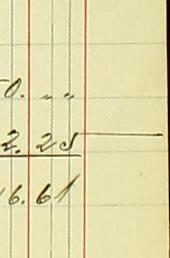 0. „ „
2. 25
16.61